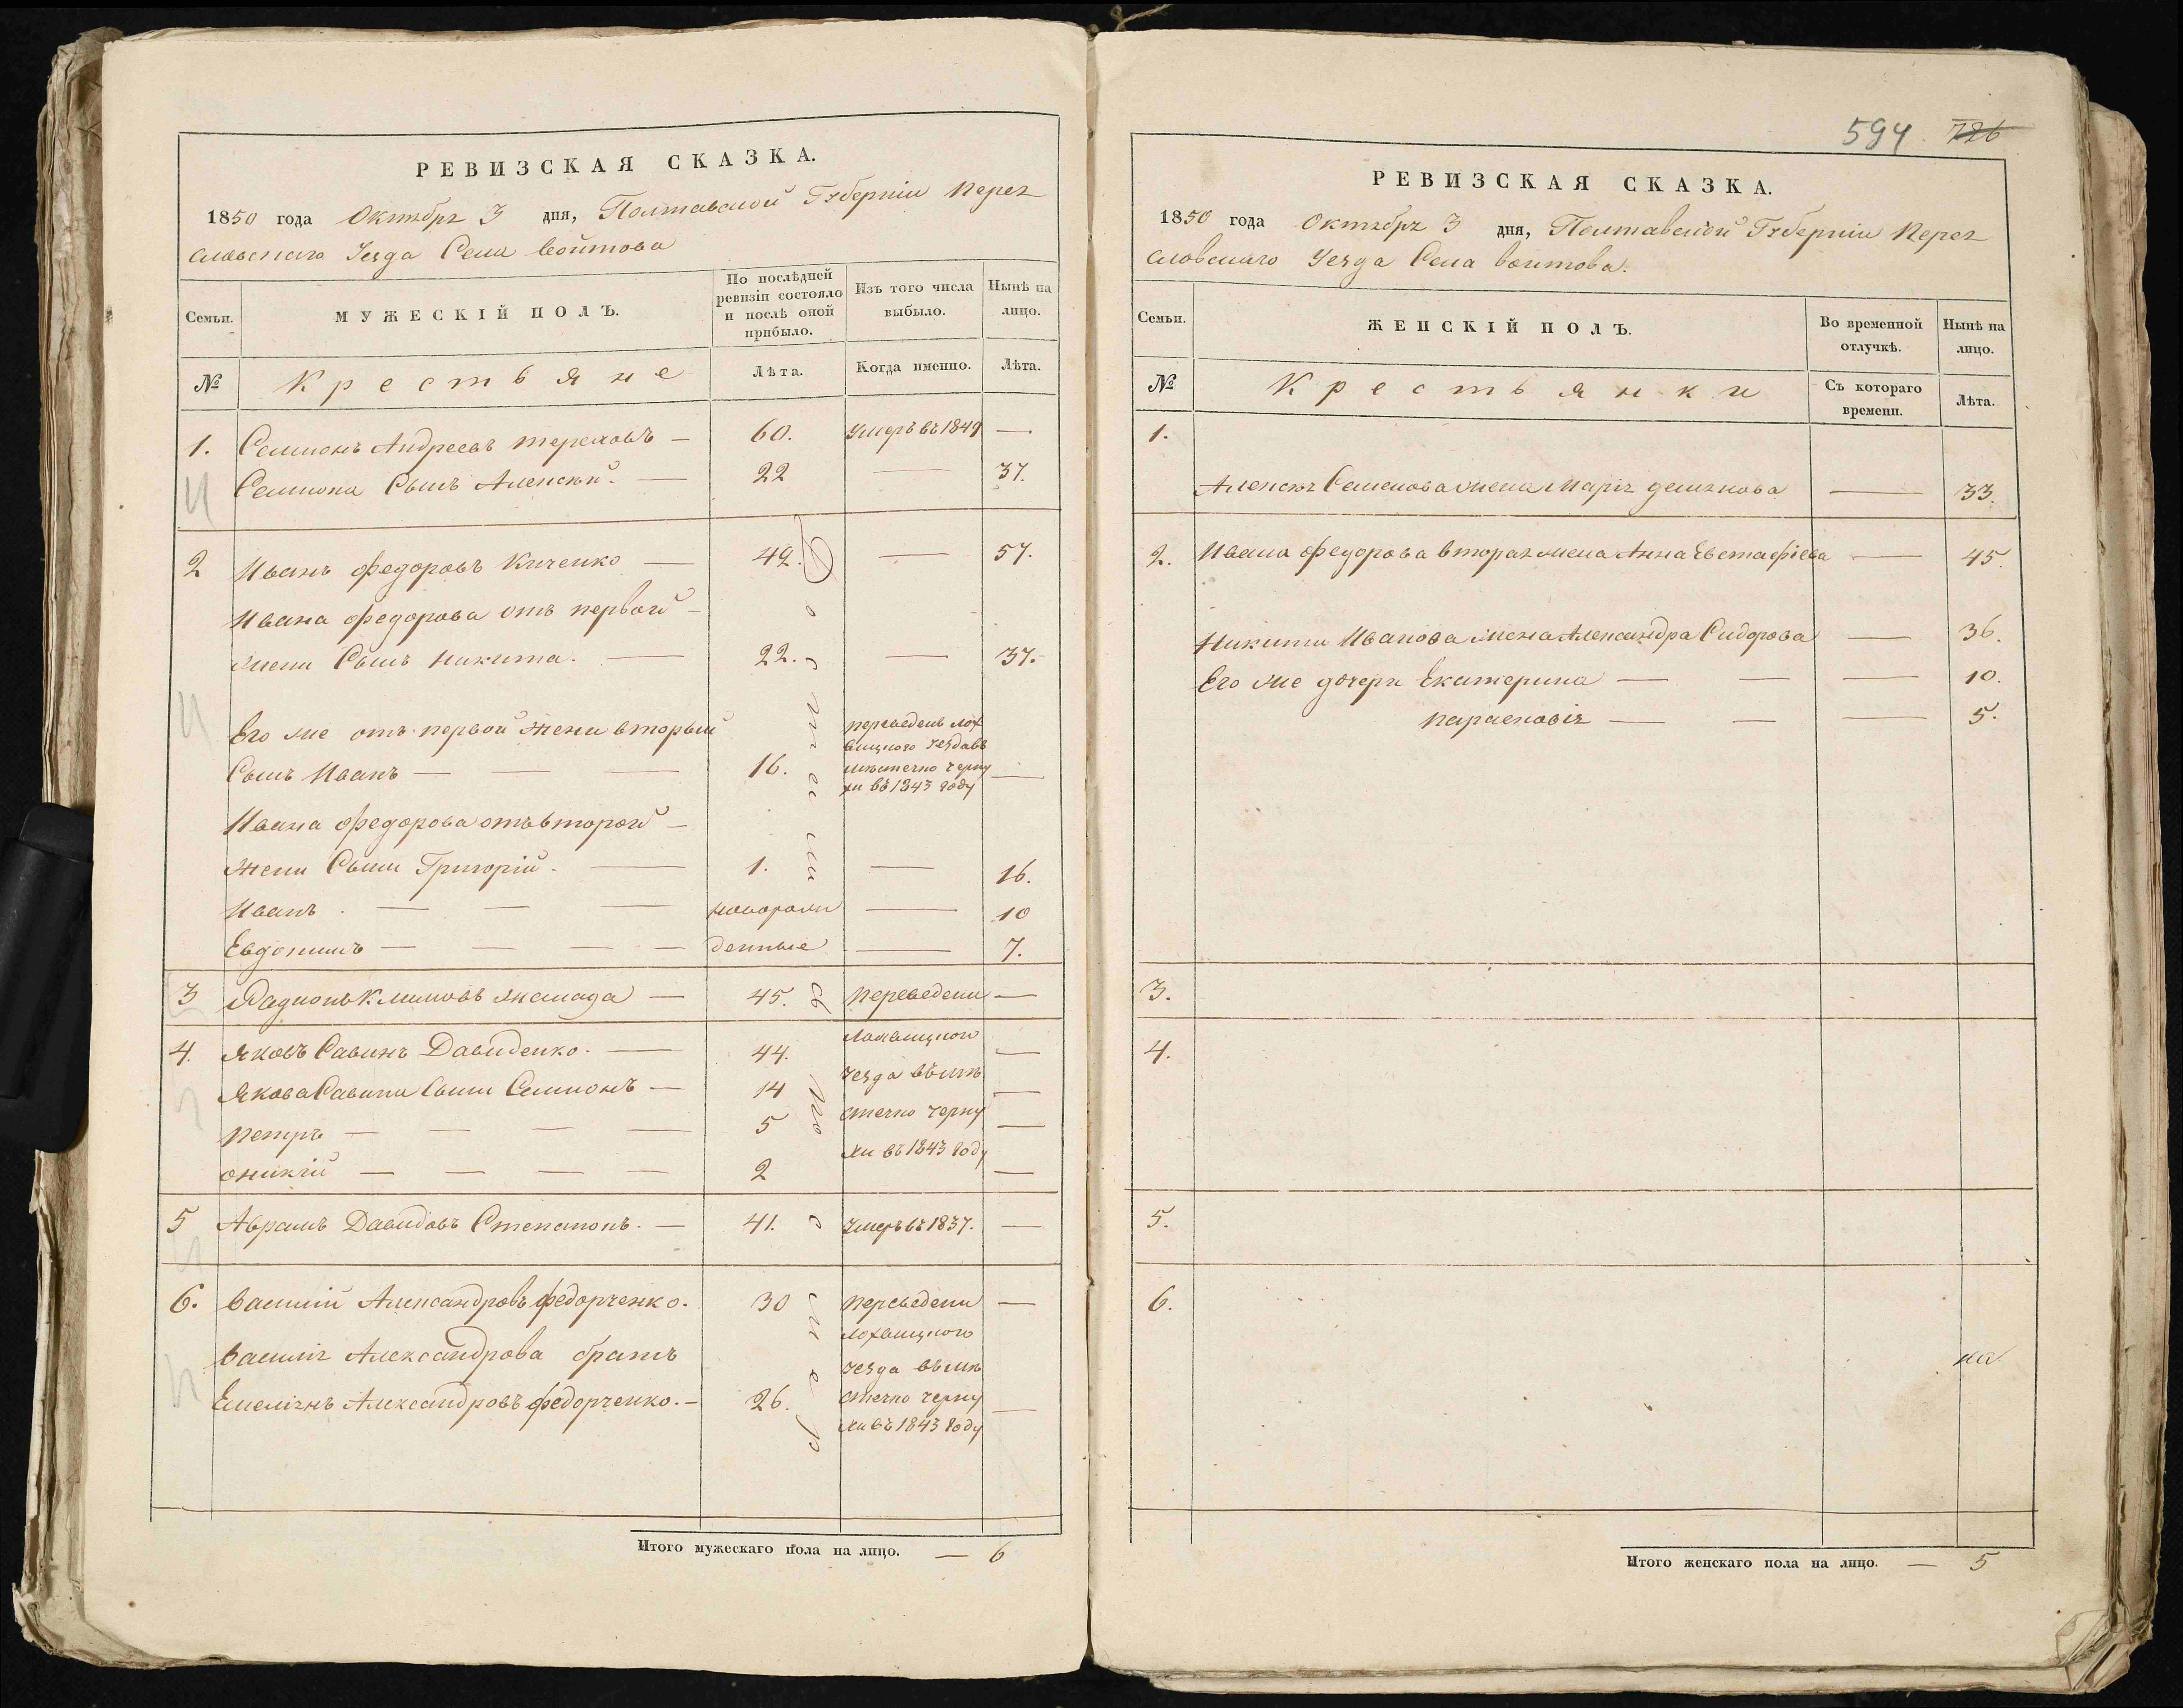 РЕВИЗСКАЯ СКАЗКА.
1850 года Октября 3 дня, Полтавской Губерніи Перея
славскаго Уезда Села Войтова
Семьи.
МУЖЕСКІЙ ПОЛЪ.
По послѣдней ревизіи состояло и послѣ оной прибыло.
Изъ того числа выбыло.
Нынѣ на лицо.
№
Крестьяне
Лѣта.
Когда именно.
Лѣта.
1. Семионъ Андреевъ — 60. Умеръ въ 1849 —
Семиона Сынъ Алексѣй. — 22 — 37.
2 Иванъ Федоровъ Киченко — 42. — 57.
Ивана Федорова отъ первой —
жени Сынъ Никита. — 22. — 37.
Его же отъ первой жени вторый
Сынъ Иванъ — — — 16. переведенъ Лох
вицкого уездавъ
мѣстечко Черну
хи въ 1843 году —
Ивана Федорова отъ второй —
жени Сыни Григорій. — 1. — 16.
Иванъ. — — — новорож — 10
Евдокимъ — — — — денные — 7.
3 Радионъ Климовъ — 45. переведени —
4. Яковъ Савинъ Давиденко. — 44. Лохвицкого —
Якова Савини Сыни Семионъ — 14 уезда въ мѣ —
Петръ — — — — 5 стечко Черну —
Оникій — — — — 2 хи въ 1843 году —
5 Абрамъ Давидовъ — 41. Умеръ въ 1837. —
6. Василій Александровъ Федорченко. 30 переведени —
Лохвицкого
Василія Александрова братъ
уезда въ мѣ
Емеліянъ Александровъ Федорченко. — 26. стечко Черну —
хи въ 1843 году
Итого мужескаго пола на лицо. — 6
594 726
РЕВИЗСКАЯ СКАЗКА.
1850 года Октября 3 дня, Полтавской Губерніи Перея
словскаго Уезда Села Воитова.
Семьи.
ЖЕНСКІЙ ПОЛЪ.
Во временной отлучкѣ.
Нынѣ на лицо.
№
Крестьянки
Съ котораго времени.
Лѣта.
1.
Алексея Семенова жена Марія Демянова — 33.
2. Ивана Федорова вторая жена Анна Евстафіева — 45.
Никити Иванова жена Александра Сидорова — 36.
Его же дочери Екатерина — — — 10.
Парасковія — — — 5.
3.
4.
5.
6.
на
Итого женскаго пола на лицо. — 5